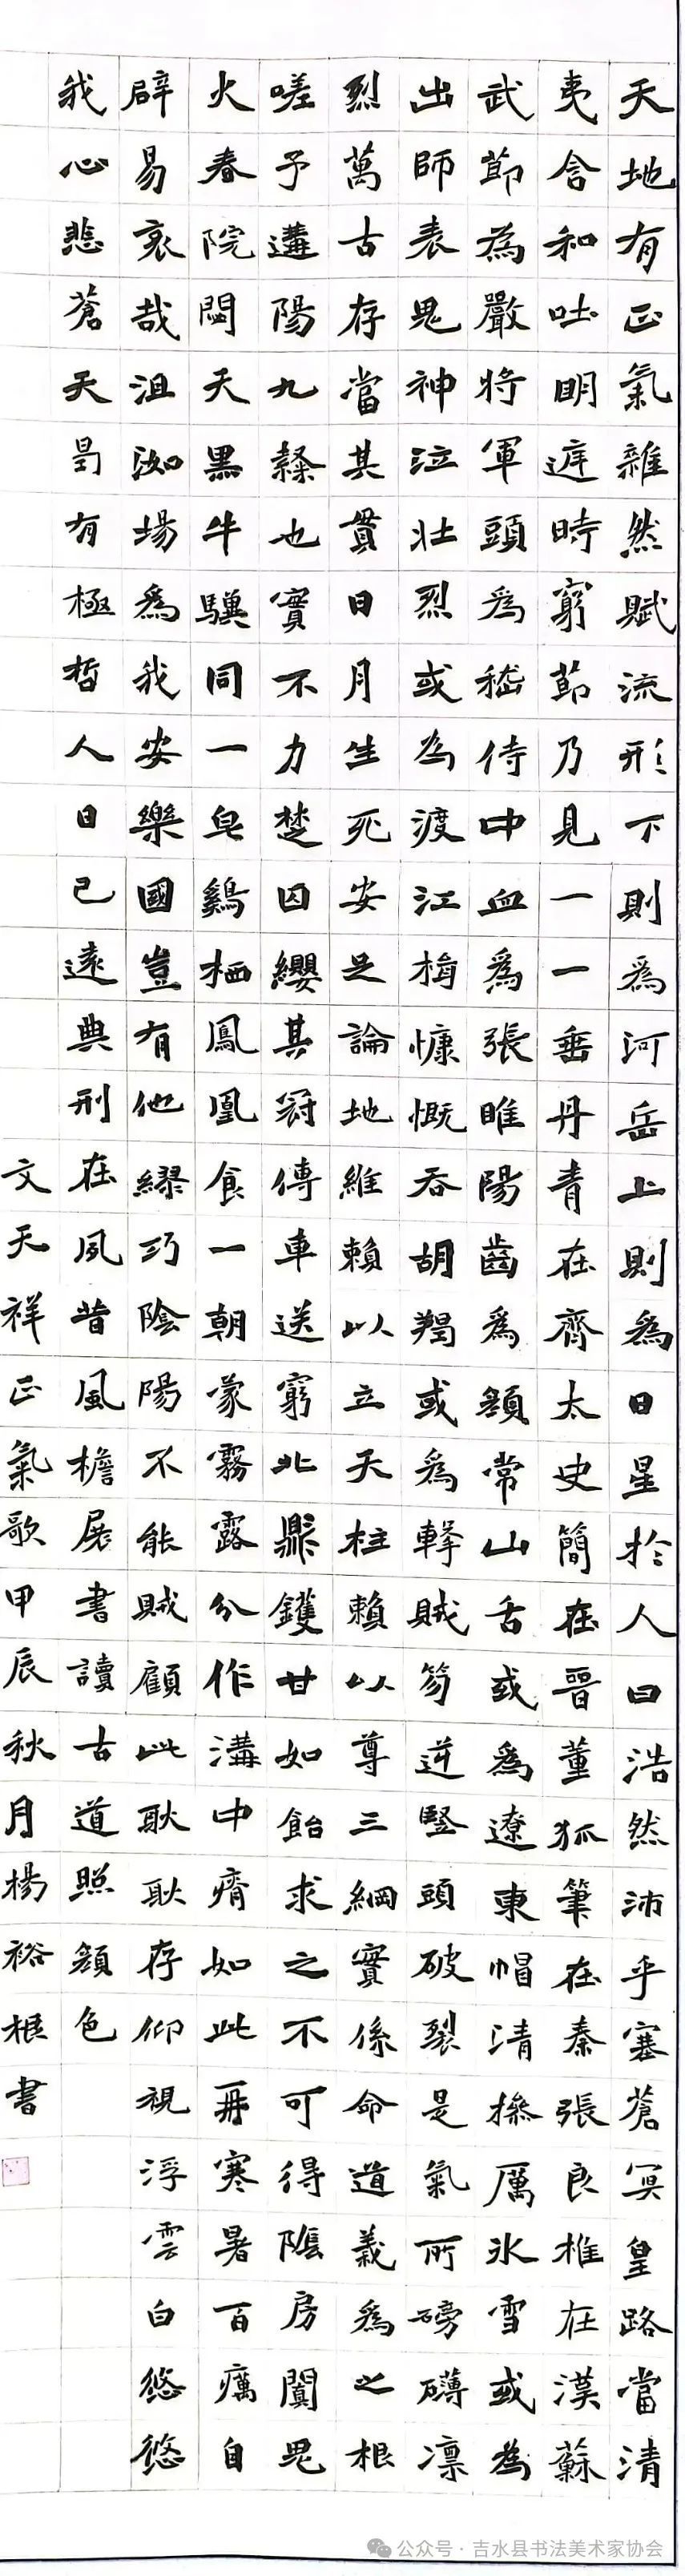 天地有正氣雜然賦流形下則爲河岳上則爲日星於人曰浩然沛乎塞蒼冥皇路當清
夷含和吐明庭時窮節乃見一一垂丹青在齊太史簡在晉董狐筆在秦張良椎在漢蘇
武節為嚴將軍頭爲嵇侍中血爲張睢陽齒爲顏常山舌或爲遼東帽清操厲冰雪或為
出師表鬼神泣壯烈或為渡江楫慷慨吞胡羯或爲擊賊笏逆豎頭破裂是氣所磅礴凛
烈萬古存當其貫日月生死安足論地維賴以立天柱賴以尊三綱實係命道義爲之根
嗟予遘陽九隸也實不力楚囚纓其冠傳車送窮北鼎鑊甘如飴求之不可得陰房闐鬼
火春院閟天黑牛驥同一皂鷄栖鳳凰食一朝蒙霧露分作溝中瘠如此再寒暑百癘自
辟易哀哉沮洳場爲我安樂國豈有他繆巧陰陽不能賊顧此耿耿存仰視浮雲白悠悠
我心悲蒼天曷有極哲人日已遠典刑在夙昔風檐展書讀古道照顏色
文天祥正氣歌甲辰秋月楊裕根書
公众号·吉水县书法美术家协会